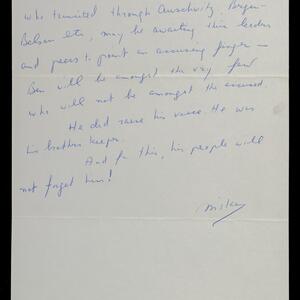 who transited through Auschwitz, Bergen-
Belsen etc, may be awaiting their leaders
and peers to point an accusing finger —
Ben will be amongst the very few
who will not be amongst the accused.
He did raise his voice. He was
his brothers keeper.
And for this, his people will
not forget him!